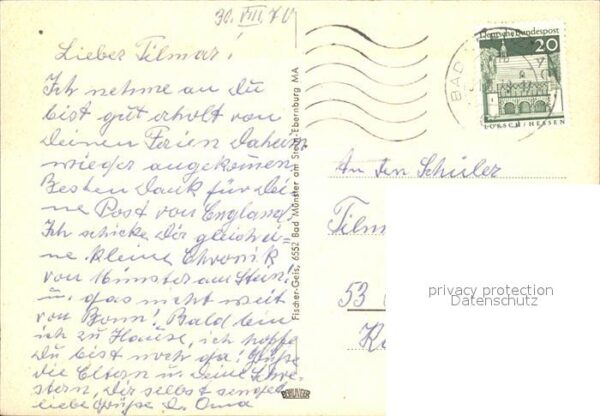 30. VIII. 70
Lieber Tilmar!
Ich nehme an du
bist gut erholt von
Deinen Ferien Daheim
wieder angekommen.
Besten Dank für Dei
ne Post von England.
Ich schicke Dir gleich ei=
ne kleine Chronik
von Münster am Stein!
u. gar nicht weit
von Bonn! Bald bin
ich zu Hause, ich hoffe
Du bist noch da! Grüße
die Eltern u. Deine Schwe=
stern, Dir selbst
liebe Grüße D. Oma
Fischer-Geis, 6552 Bad Münster am Stein-Ebernburg MA
Deutsche Bundespost
20
LORSCH/HESSEN
BAD
An den Schüler
Tilmar
53
privacy protection
Datenschutz